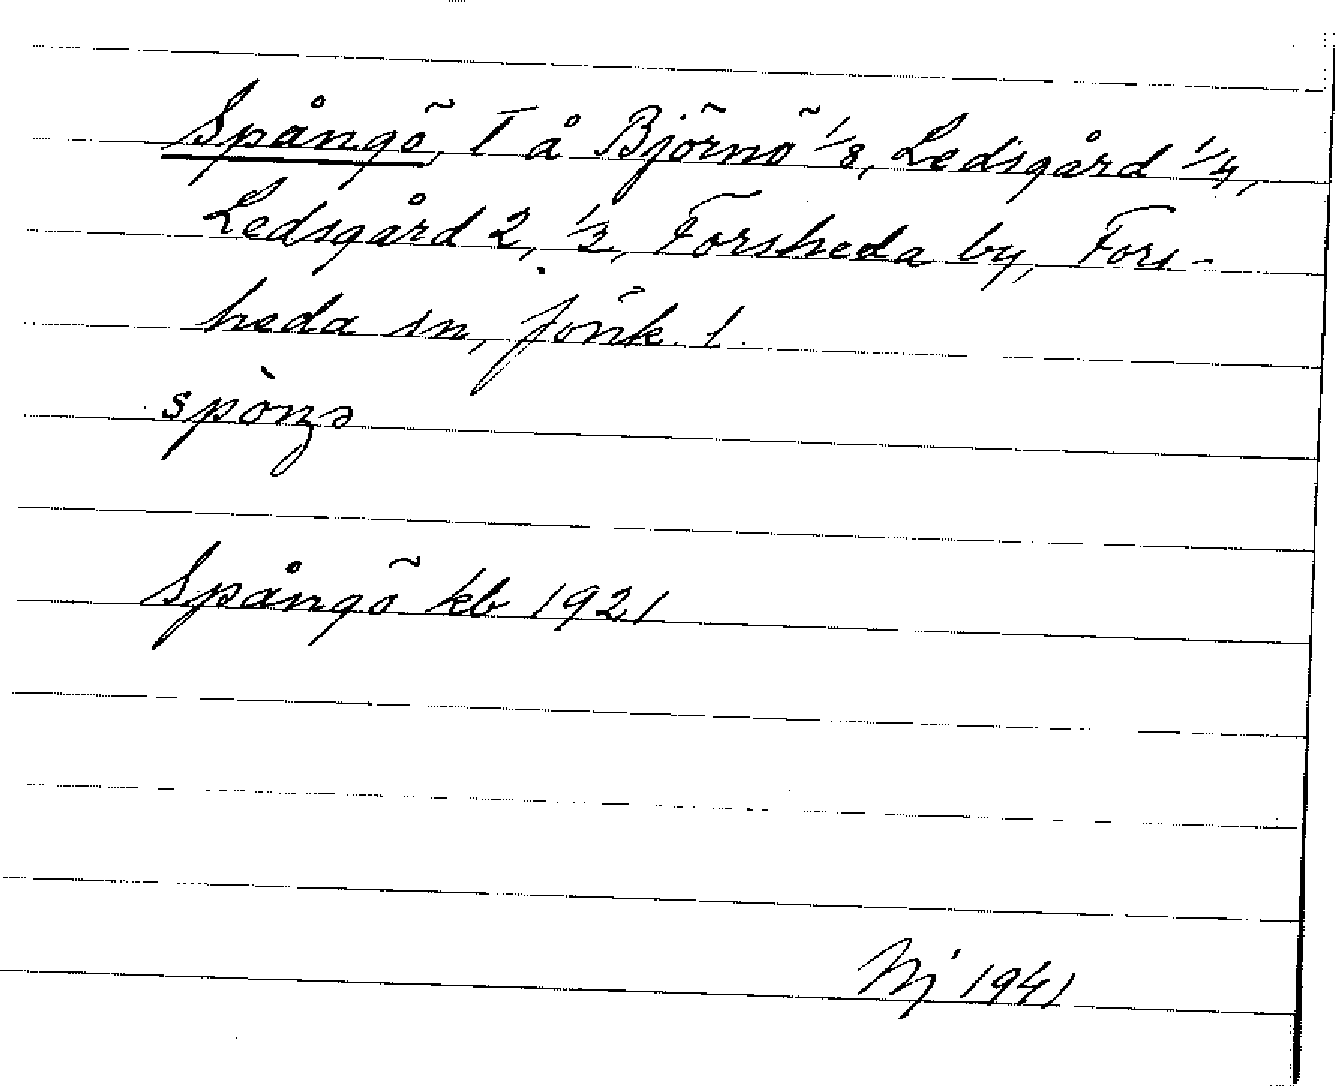 Spångö, T å Björnö 1/8, Ledsgård 1/4,
Ledsgård 2, 1/2, Forsheda by, Fors-
heda sn, Jönk. l.
Spångö kb 1921
1941